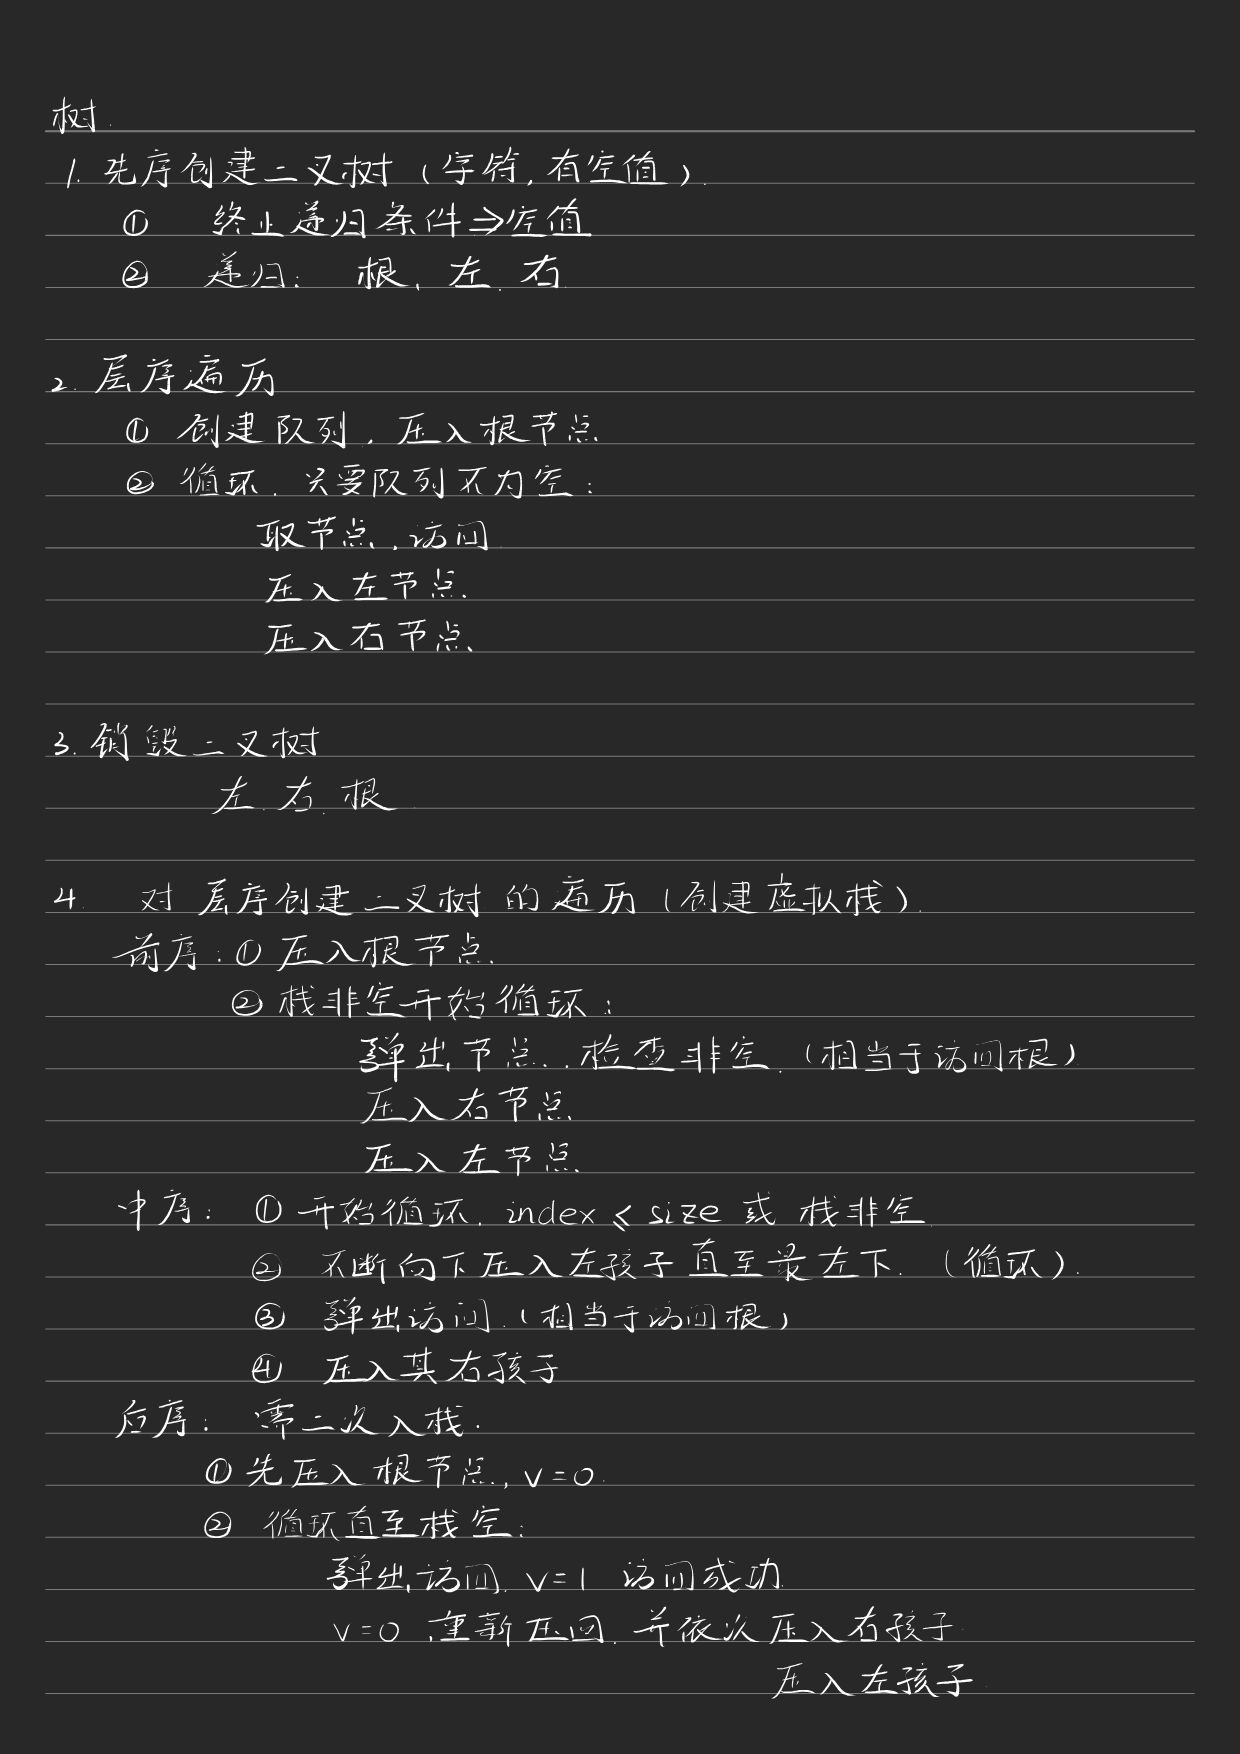 树.
1. 先序创建二叉树 (字符, 有空值).
① 终止递归条件⇒空值
② 递归: 根、左、右
2. 层序遍历
① 创建队列, 压入根节点
② 循环. 只要队列不为空:
取节点, 访问
压入左节点.
压入右节点.
3. 销毁二叉树
左、右、根
4. 对层序创建二叉树的遍历 (创建虚拟栈).
前序: ① 压入根节点.
② 栈非空开始循环:
弹出节点, 检查非空. (相当于访问根)
压入右节点
压入左节点.
中序: ① 开始循环. index ≤ size 或 栈非空
② 不断向下压入左孩子直至最左下. (循环).
③ 弹出访问. (相当于访问根)
④ 压入其右孩子
后序: 需二次入栈.
① 先压入根节点, v=0.
② 循环直至栈空:
弹出, 访问. v=1 访问成功
v=0 重新压回. 并依次压入右孩子
压入左孩子